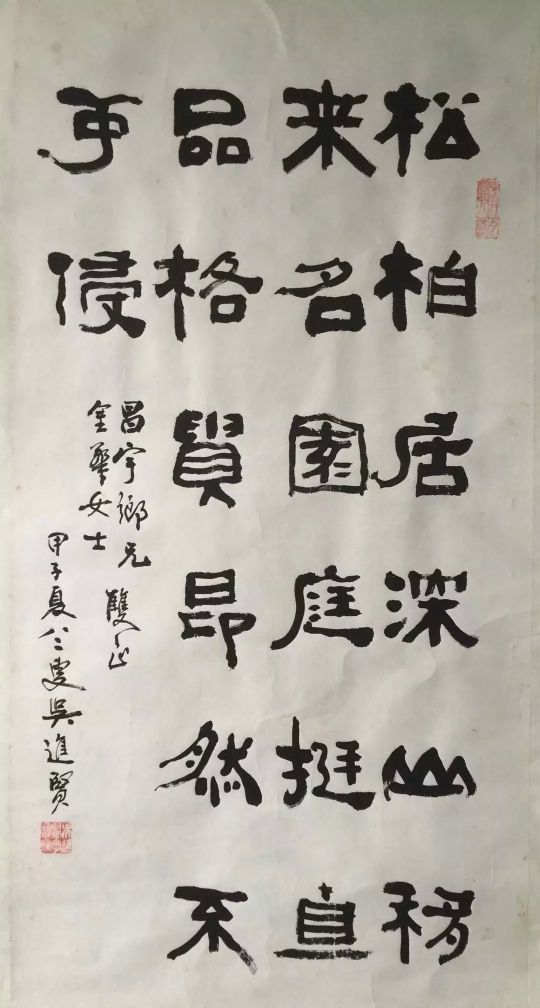 松柏居深山移
来名園庭挺直
品格貴昂然不
可侵
昌宇鄉兄
金女士
雙正
甲子夏八二叟吳進賢